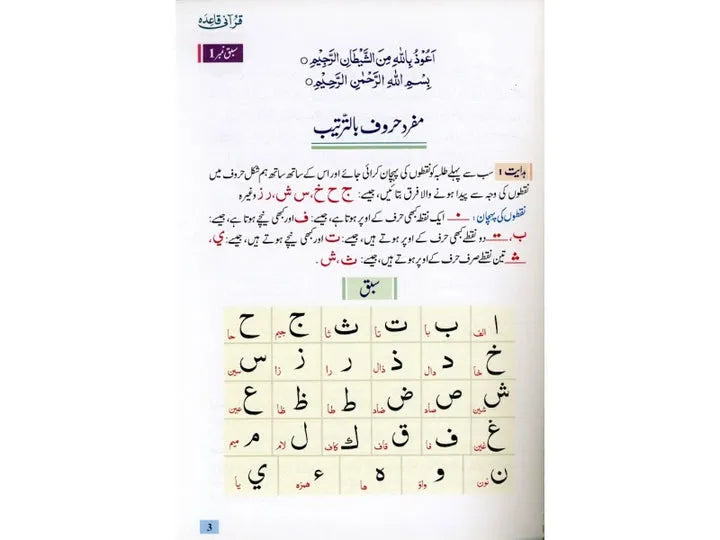 قرآنی قاعدہ
سبق نمبر 1
اَعُوْذُ بِاللّٰهِ مِنَ الشَّيْطَانِ الرَّجِيْمِ ○
بِسْمِ اللّٰهِ الرَّحْمٰنِ الرَّحِيْمِ ○
مفرد حروف بالتّرتیب
ہدایت : سب سے پہلے طلبہ کو نقطوں کی پہچان کرائی جائے اور اس کے ساتھ ساتھ ہم شکل حروف میں
نقطوں کی وجہ سے پیدا ہونے والا فرق بتائیں، جیسے: ج ح خ، س ش، ر ز وغیرہ
نقطوں کی پہچان : ایک نقطہ کبھی حرف کے اوپر ہوتا ہے، جیسے: ف اور کبھی نیچے ہوتا ہے، جیسے:
ب، دو نقطے کبھی حرف کے اوپر ہوتے ہیں، جیسے: ت اور کبھی نیچے ہوتے ہیں، جیسے: ي،
تین نقطے صرف حرف کے اوپر ہوتے ہیں، جیسے: ث، ش ۔
سبق
ا الف ب با ت تا ث ثا ج جیم ح حا
خ خا د دال ذ ذال ر را ز زا س سین
ش شین ص صاد ض ضاد ط طا ظ ظا ع عین
غ غین ف فا ق قاف ك کاف ل لام م میم
ن نون و واؤ ه ها ء همزه ي یا
3